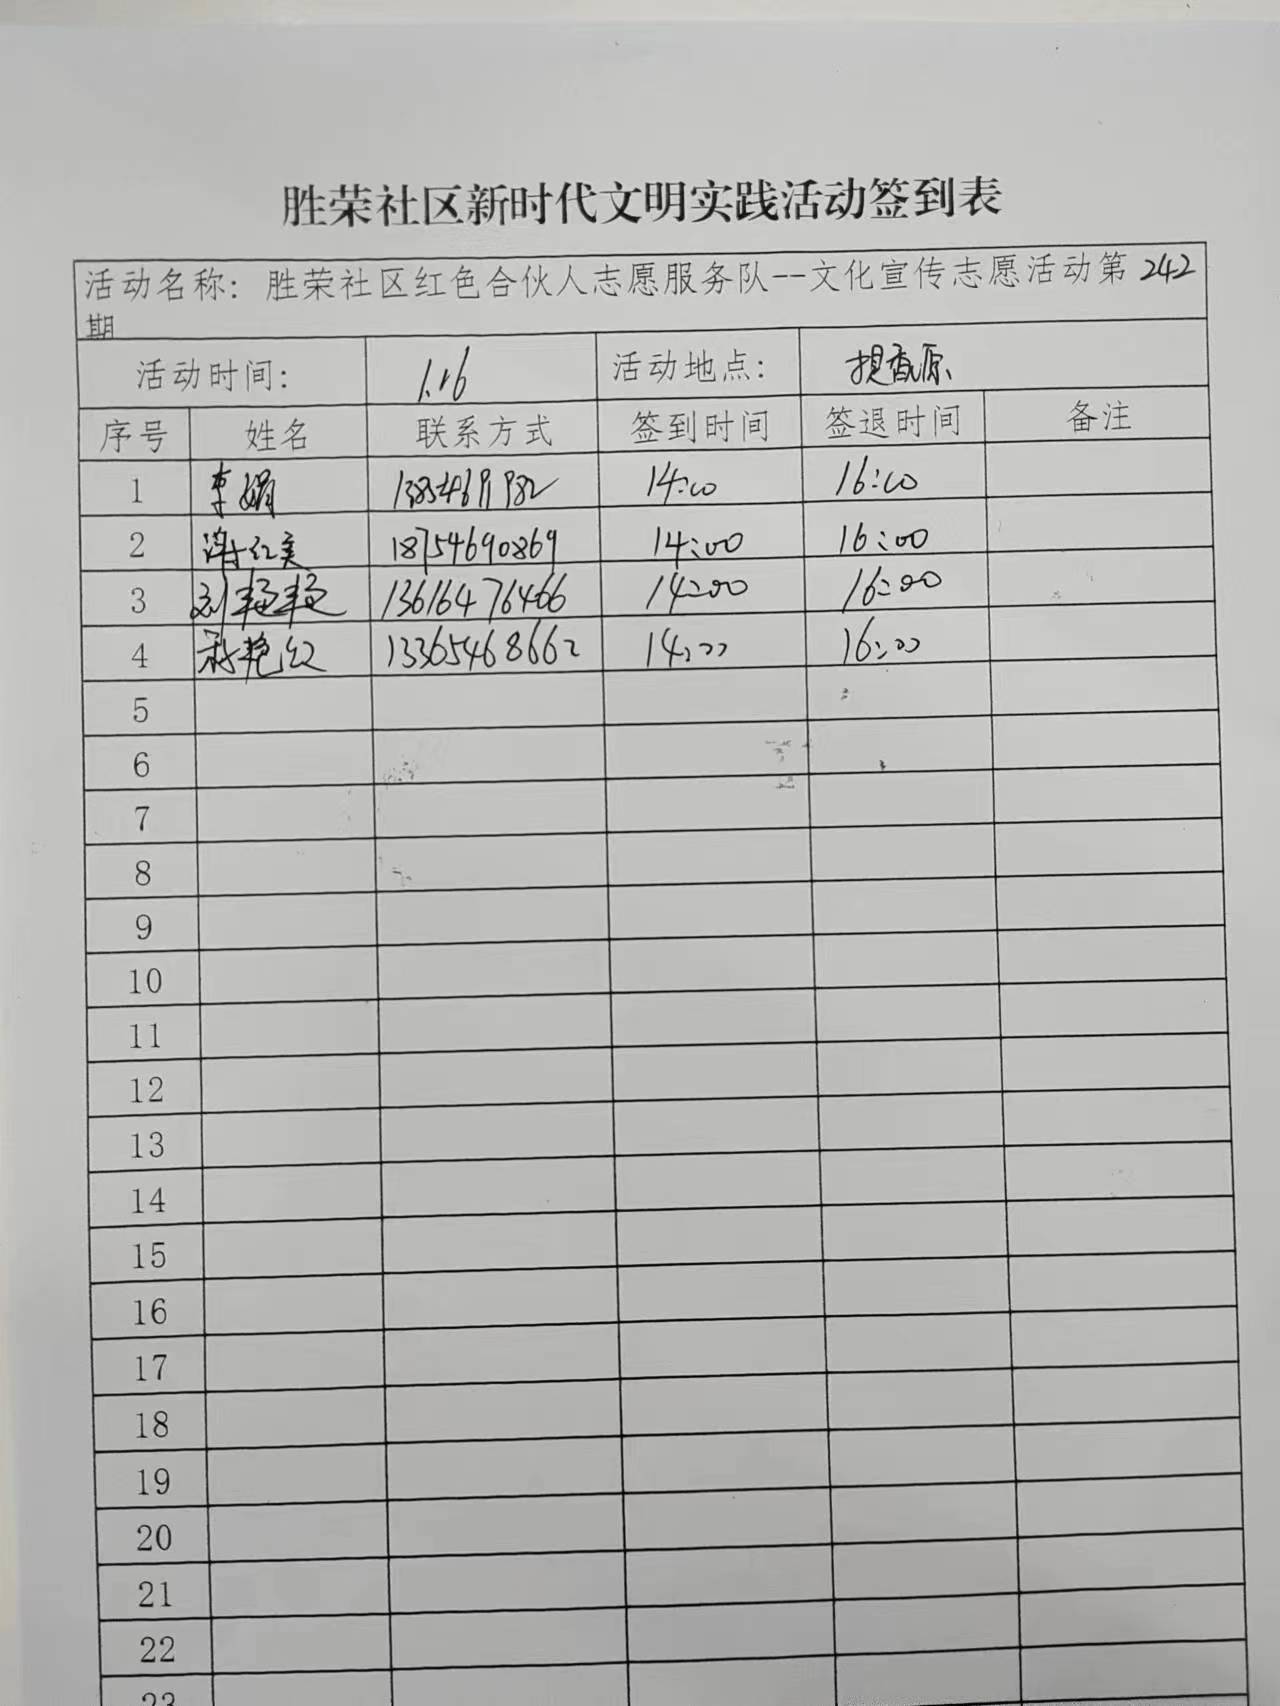 胜荣社区新时代文明实践活动签到表
活动名称：胜荣社区红色合伙人志愿服务队--文化宣传志愿活动第242
期
活动时间： 1.16 活动地点： 提香源
序号 姓名 联系方式 签到时间 签退时间 备注
1 李娟 14:00 16:00
2 红美 18754690869 14:00 16:00
3 刘 13616476466 14:00 16:00
4 艳红 13365468662 14:00 16:00
5
6
7
8
9
10
11
12
13
14
15
16
17
18
19
20
21
22
23